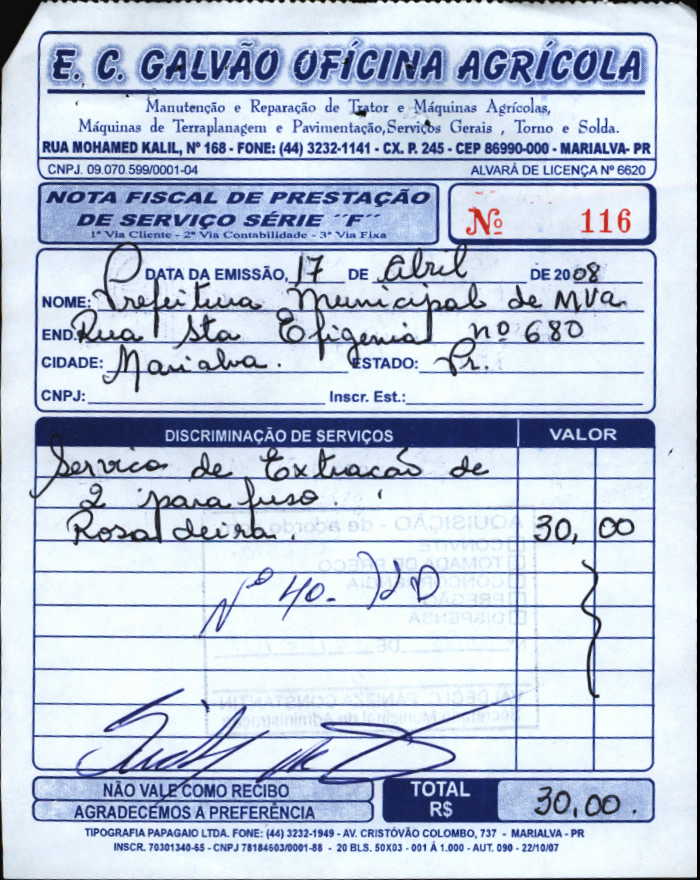 E. C. GALVÃO OFÍCINA AGRÍCOLA
Manutenção e Reparação de Trator e Máquinas Agrícolas,
Máquinas de Terraplanagem e Pavimentação,Serviços Gerais , Torno e Solda.
RUA MOHAMED KALIL, Nº 168 - FONE: (44) 3232-1141 - CX. P. 245 - CEP 86990-000 - MARIALVA- PR
CNPJ. 09.070 599/0001-04 ALVARÁ DE LICENÇA Nº 6620
NOTA FISCAL DE PRESTAÇÃO
DE SERVIÇO SÉRIE ´´F´´
1ª Via Cliente - 2ª Via Contabilidade - 3ª Via Fixa
Nº 116
DATA DA EMISSÃO, 17 DE Abril DE 2008
NOME: Prefeitura Municipal de Mva
END. Rua Sta Efigenia nº 680
CIDADE: Marialva. ESTADO: Pr.
CNPJ: Inscr. Est.:
DISCRIMINAÇÃO DE SERVIÇOS VALOR
Servico de Extracão de
2 parafuso.
Rosaldeira. 30,00
Nº 40-
AQUISIÇÃO - de acordo com
CONVITE
TOMADA DE PREÇO
CONCORRÊNCIA
PREGÃO
DISPENSA
Nº DE
Secretário Municipal de Administração
NÃO VALE COMO RECIBO
AGRADECEMOS A PREFERÊNCIA
TOTAL
R$ 30,00.
TIPOGRAFIA PAPAGAIO LTDA. FONE: (44) 3232-1949 - AV. CRISTÓVÃO COLOMBO, 737 - MARIALVA - PR
INSCR. 70301340-65 - CNPJ 78184603/0001-88 - 20 BLS. 50X03 - 001 Á 1.000 - AUT. 090 - 22/10/07